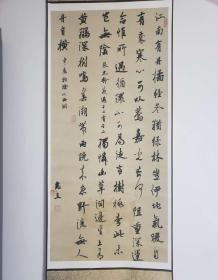 江南有丹橘經冬猶綠林豈伊地氣暖自
有歲寒心可以薦嘉客奈何阻重深運
命惟所遇循環不可尋徒言樹桃李此木
豈無陰 張九齡感遇十二首 獨憐幽草澗邊生上有
黃鸝深樹鳴春潮帶雨晚來急野渡無人
舟自橫 韋應物滁州西澗